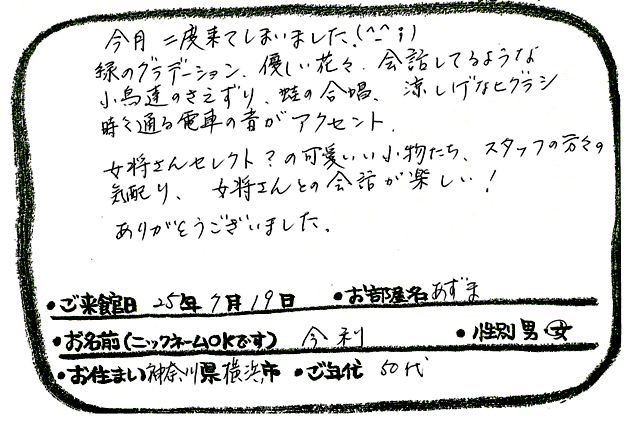 今月 二度来てしまいました。(^_^;)
緑のグラデーション、優しい花々、会話してるような
小鳥達のさえずり、蛙の合唱、涼しげなヒグラシ
時々通る電車の音がアクセント。
女将さんセレクト?の可愛いい小物たち、スタッフの方々の
気配り、女将さんとの会話が楽しい!
ありがとうございました。
・ご来館日 25年7月19日 ・お部屋名 あずま
・お名前(ニックネームOKです) 今利 ・性別 男 女
・お住まい 神奈川県横浜市 ・ご年代 50代